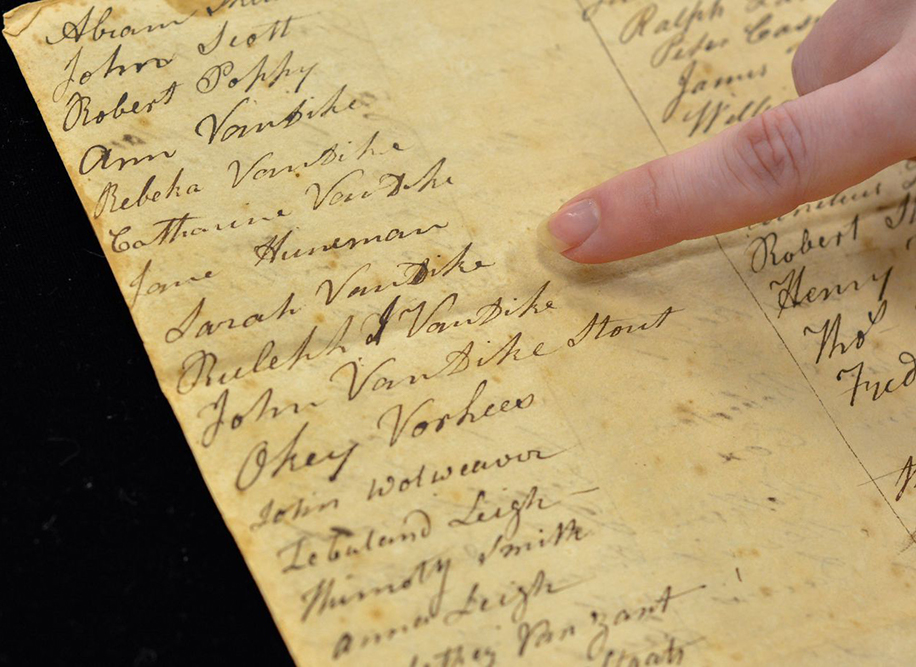 Abram
John Scott
Robert Poppy
Ann VanDike
Rebeka VanDike
Catharine VanDike
Jane Huneman
Sarah VanDike
Ruleph J VanDike
John VanDike Stout
Okey Vorhees
John Wolweavor
Leigh
Thimoty Smith
Anna Leigh
Van zant
Staats
Ralph
Peter
James
Robert
Henry
Thos
Fred